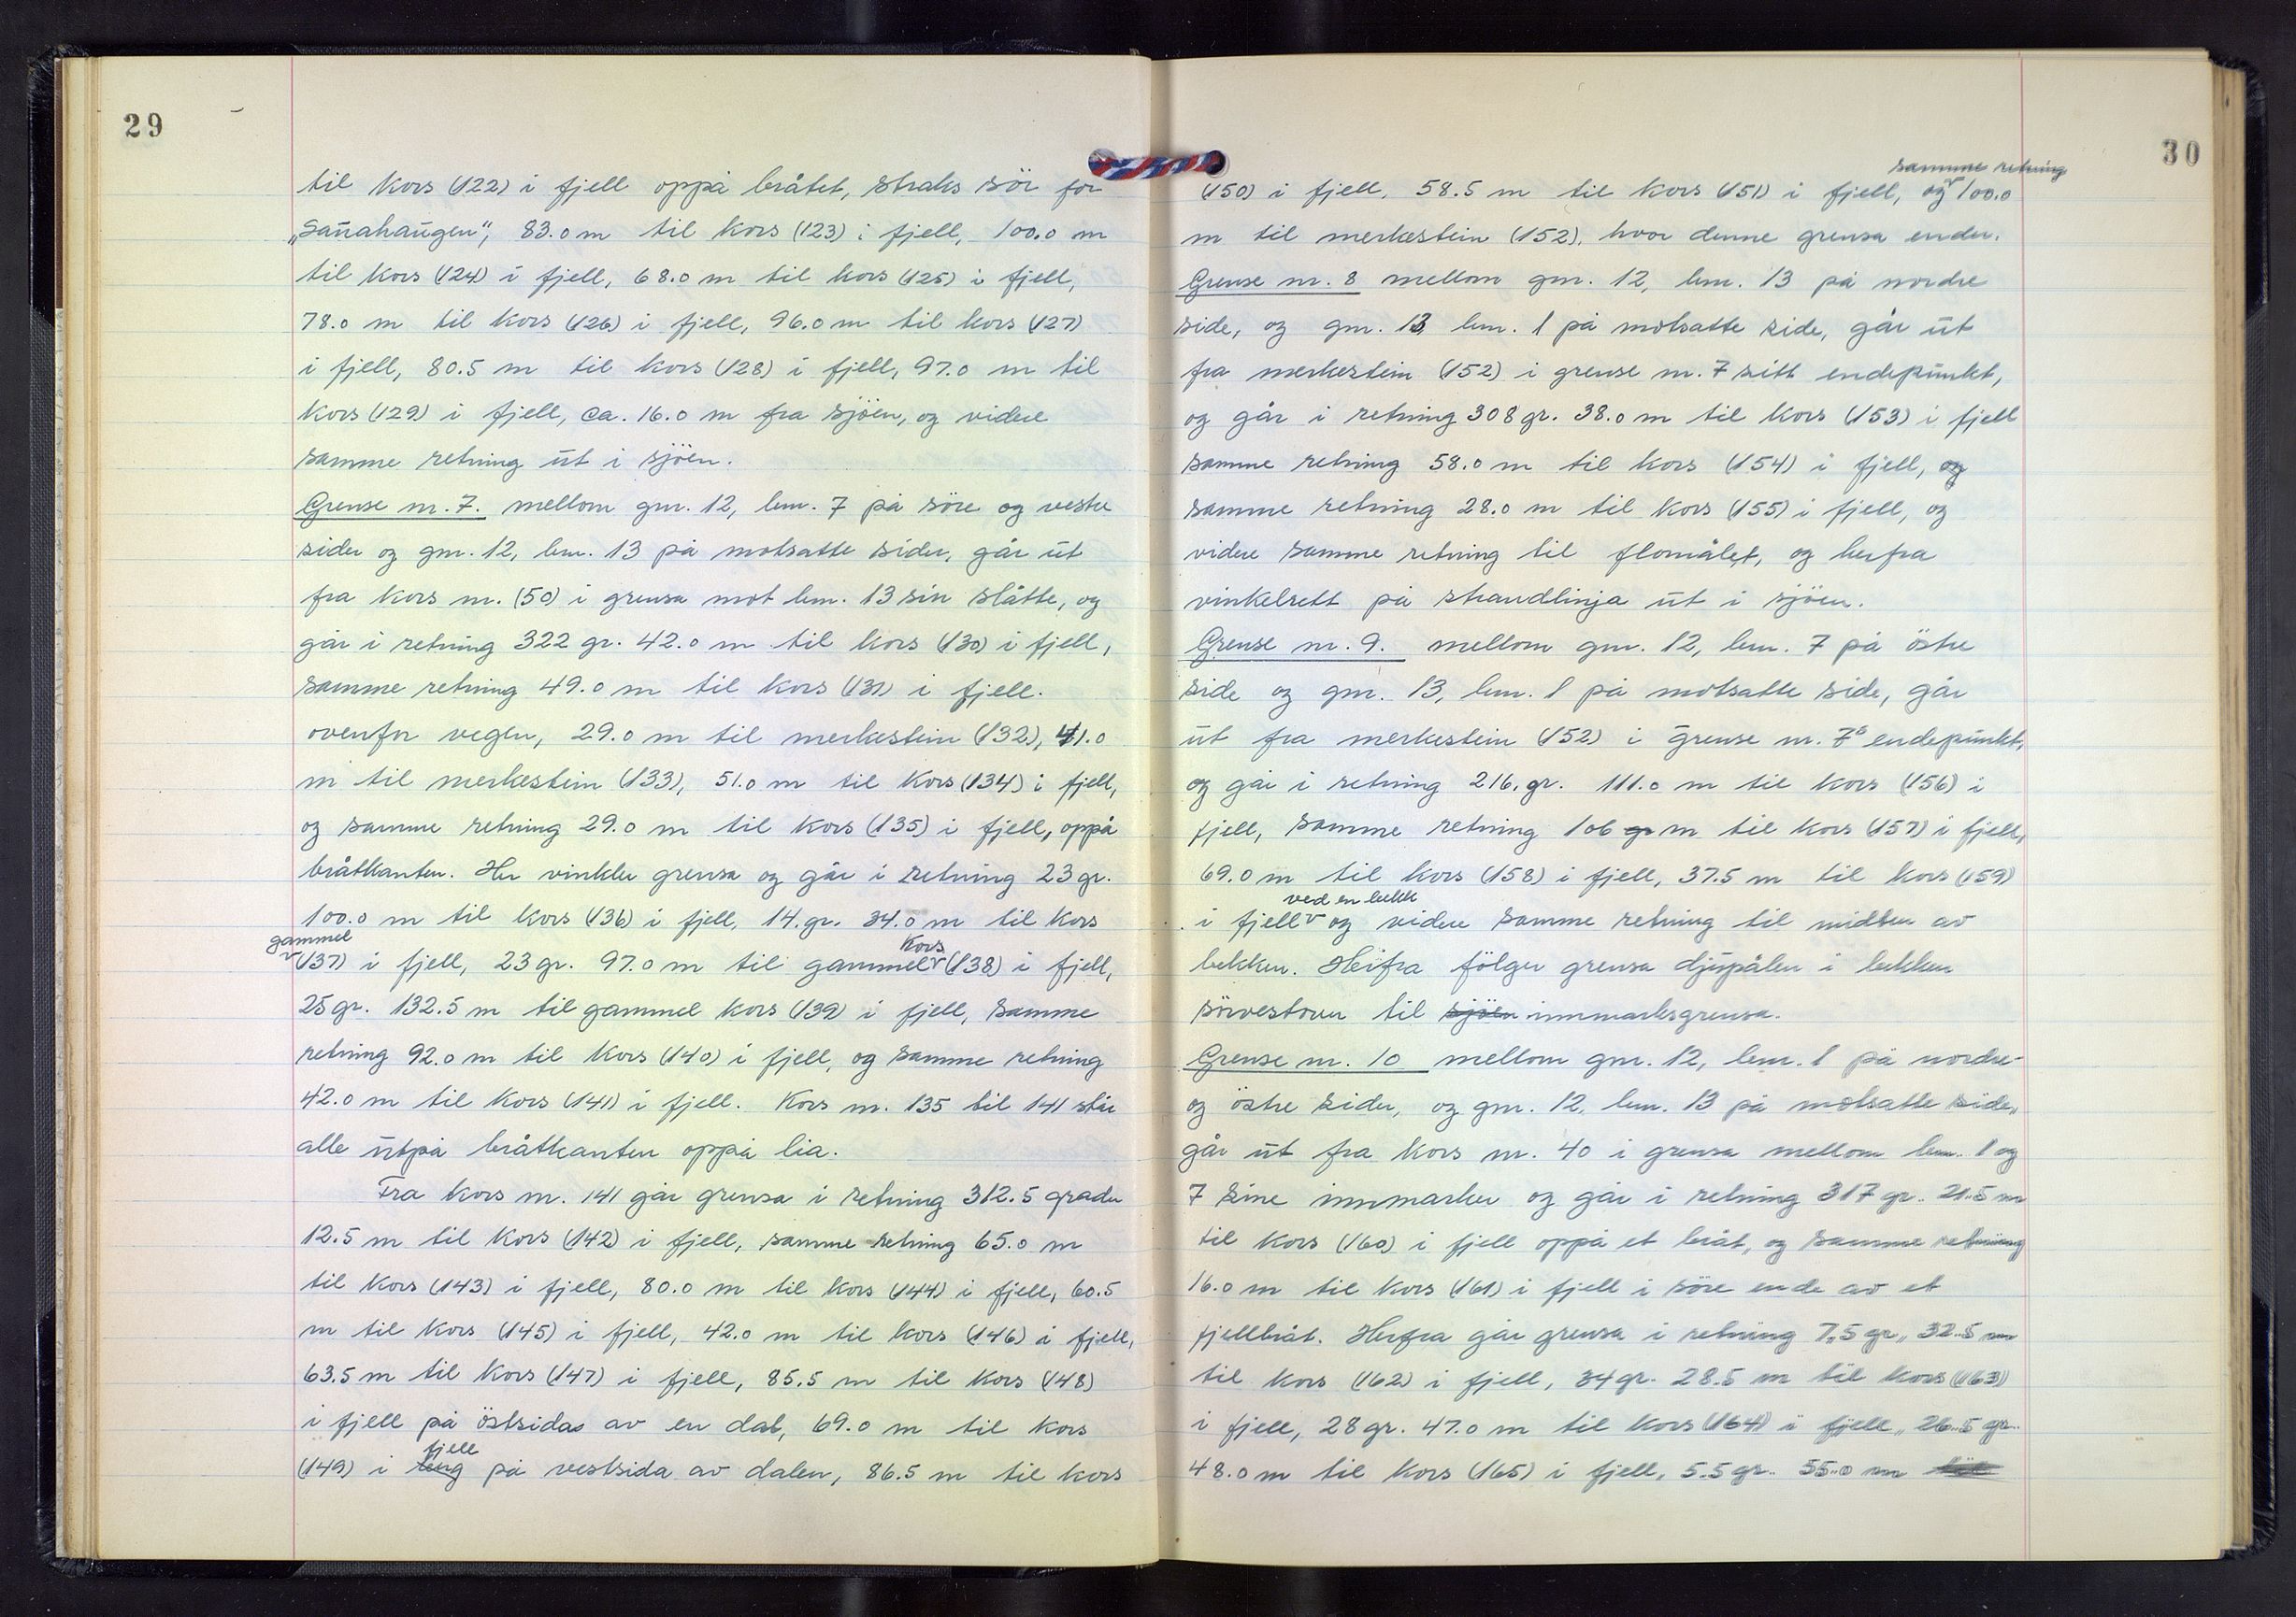 29
til kors (122) i fjell oppå bråtet, straks sör for
„Sauahaugen", 83.0 m til kors (123) i fjell, 100.0 m
til kors (124) i fjell, 68.0 m til kors (125) i fjell,
78.0 m til kors (126) i fjell, 96.0 m til kors (127)
i fjell, 80.5 m til kors (128) i fjell, 97.0 m til
kors (129) i fjell, ca. 16.0 m fra sjöen, og videre
samme retning ut i sjöen.
Grense nr. 7. mellom gnr. 12, bnr. 7 på söre og vestre
sider og gnr. 12, bnr. 13 på motsatte sider, går ut
fra kors nr. (50) i grensa mot bnr. 13 sin slåtte, og
går i retning 322 gr. 42.0 m til kors (130) i fjell,
samme retning 49.0 m til kors (131) i fjell.
ovenfor veglen, 29.0 m til merkestein (132), 41.0
m til merkestein (133), 51.0 m til kors (134) i fjell,
og samme retning 29.0 m til kors (135) i fjell, oppå
bråtkanten. Her vinkler grensa og går i retning 23 gr.
100.0 m til kors (136) i fjell, 14. gr. 34.0 m til kors
gammel
(137) i fjell, 23 gr. 97.0 m til gammel kors (138) i fjell,
25 gr. 132.5 m til gammel kors (139) i fjell, samme
retning 92.0 m til kors (140) i fjell, og samme retning
42.0 m til kors (141) i fjell. Kors nr. 135 til 141 står
alle utpå bråtkanten oppå lia.
Fra kors nr. 141 går grensa i retning 312.5 grader
12.5 m til kors (142) i fjell, samme retning 65.0 m
til kors (143) i fjell, 80.0 m til kors (144) i fjell, 60.5
m til kors (145) i fjell, 42.0 m til kors (146) i fjell,
63.5 m til kors (147) i fjell, 85.5 m til kors (148)
i fjell på östsida av en dal, 69.0 m til kors
(149) i fjell på vestsida av dalen, 86.5 m til kors
30
samme retning
(150) i fjell, 58.5 m til kors (151) i fjell, og 100.0
m til merkestein (152), hvor denne grensa ender.
Grense nr. 8 mellom gnr. 12, bnr. 13 på nordre
side, og gnr. 13 bnr. 1 på motsatte side, går ut
fra merkestein (152) i grense nr. 7 sitt endepunkt,
og går i retning 308 gr. 38.0 m til kors (153) i fjell
samme retning 58.0 m til kors (154) i fjell, og
samme retning 28.0 m til kors (155) i fjell, og
videre samme retning til flomålet, og herfra
vinkelrett på strandlinja ut i sjöen.
Grense nr. 9. mellom gnr. 12, bnr. 7 på östre
side og gnr. 13, bnr. 1 på motsatte side, går
ut fra merkestein (152) i grense nr. 7s endepunkt,
og går i retning 216. gr. 111.0 m til kors (156) i
fjell, samme retning 106 gr m til kors (157) i fjell,
69.0 m til kors (158) i fjell, 37.5 m til kors (159)
ved en bekk
i fjell og videre samme retning til midten av
bekken. Heifra fölger grensa djupålen i bekken
sörvestover til sjöen innmarksgrensa.
Grense nr. 10 mellom gnr. 12, bnr. 1 på nordre-
og östre sider, og gnr. 12, bnr. 13 på motsatte side,
går ut fra kors nr. 40 i grensa mellom bnr. 1 og
7 sine innmarker og går i retning 317 gr. 21.5 m
til kors (160) i fjell oppå et bråt, og samme retning
16.0 m til kors (161) i fjell i söre ende av et
fjellbråt. Herfra går grensa i retning 7.5 gr. 32.5 m
til kors (162) i fjell, 34 gr. 28.5 m til kors (163)
i fjell, 28 gr. 47.0 m til kors (164) i fjell, 26.5 gr.
48.0 m til kors (165) i fjell, 5.5 gr. 55.0 m